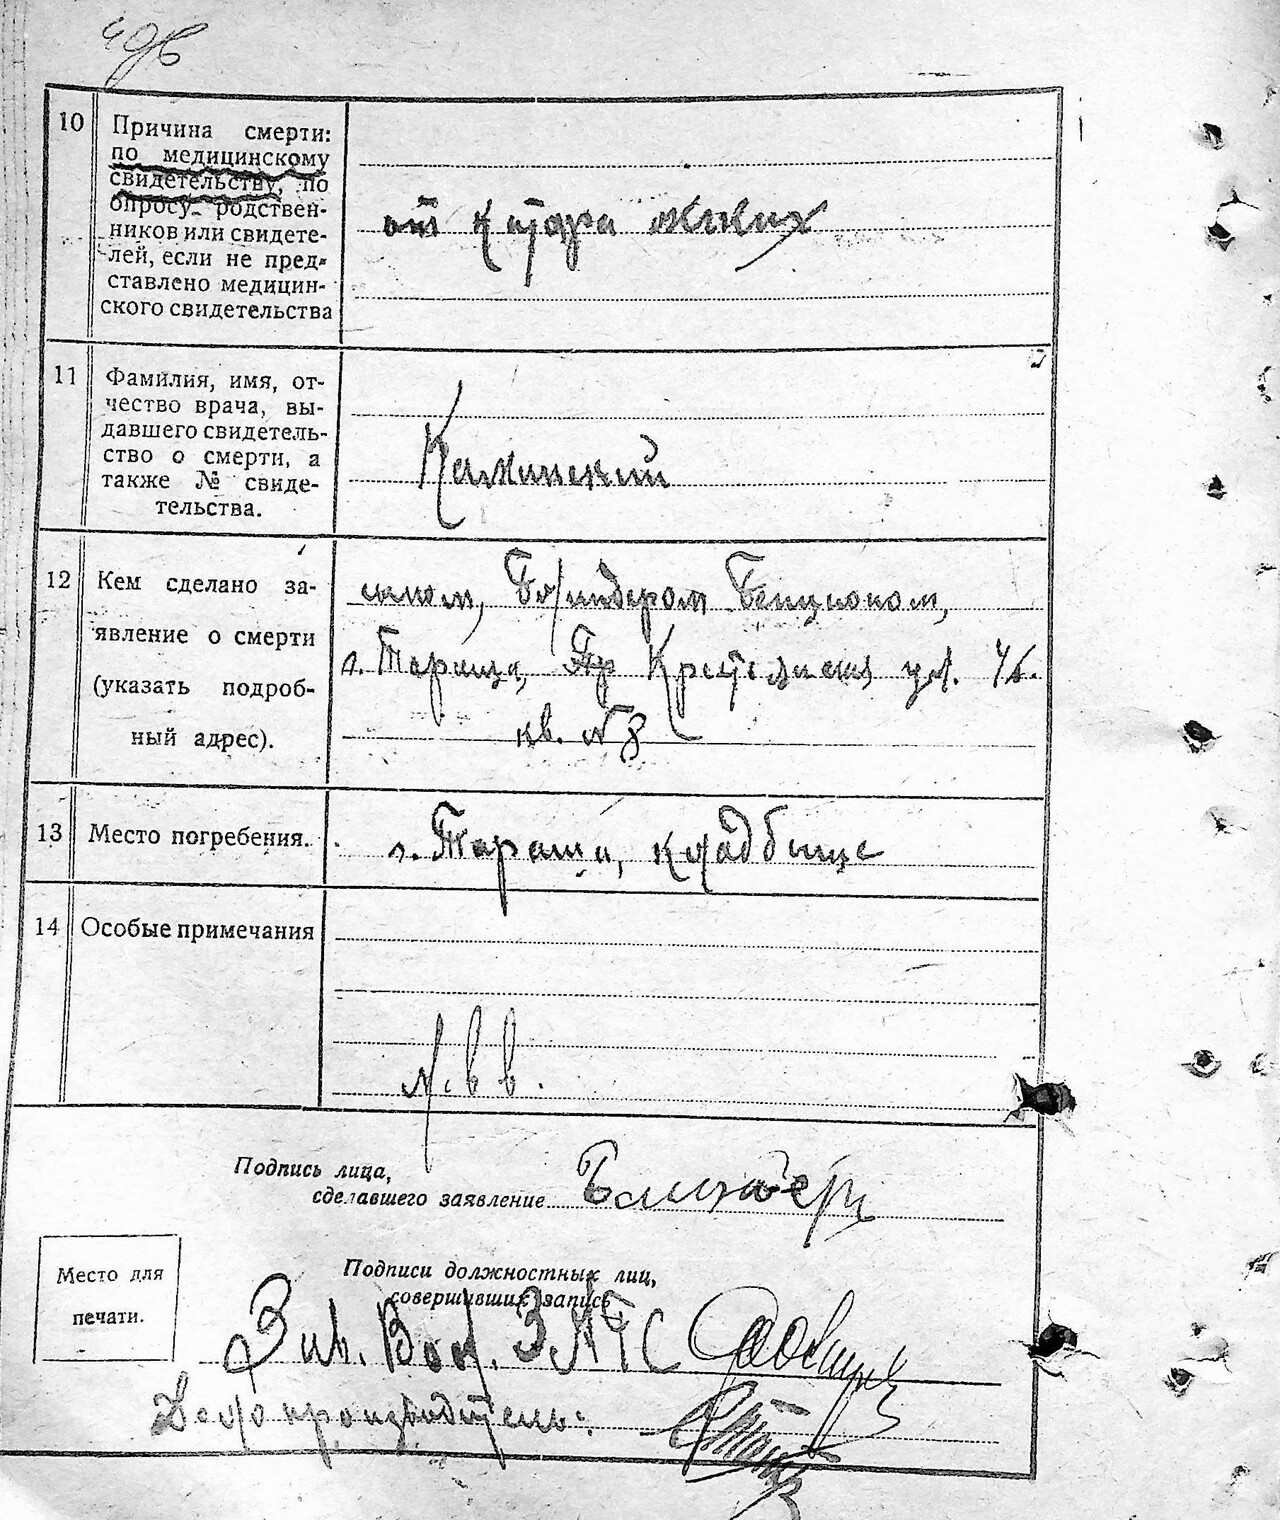 10 Причина смерти:
по медицинскому
свидетельству, по
опросу родствен-
ников или свидете-
лей, если не пред-
ставлено медицин-
ского свидетельства
от катара
11 Фамилия, имя, от-
чество врача, вы-
давшего свидетель-
ство о смерти, а
также № свиде-
тельства.
Каминский
12 Кем сделано за-
явление о смерти
(указать подроб-
ный адрес).
сыном, Бенционом,
г. Тараща, ул.
кв. № 8
13 Место погребения.
г. Тараща, кладбище
14 Особые примечания
Подпись лица,
сделавшего заявление
Место для
печати.
Подписи должностных лиц,
совершивших запись
Зав. ЗАГС
Делопроизводитель: